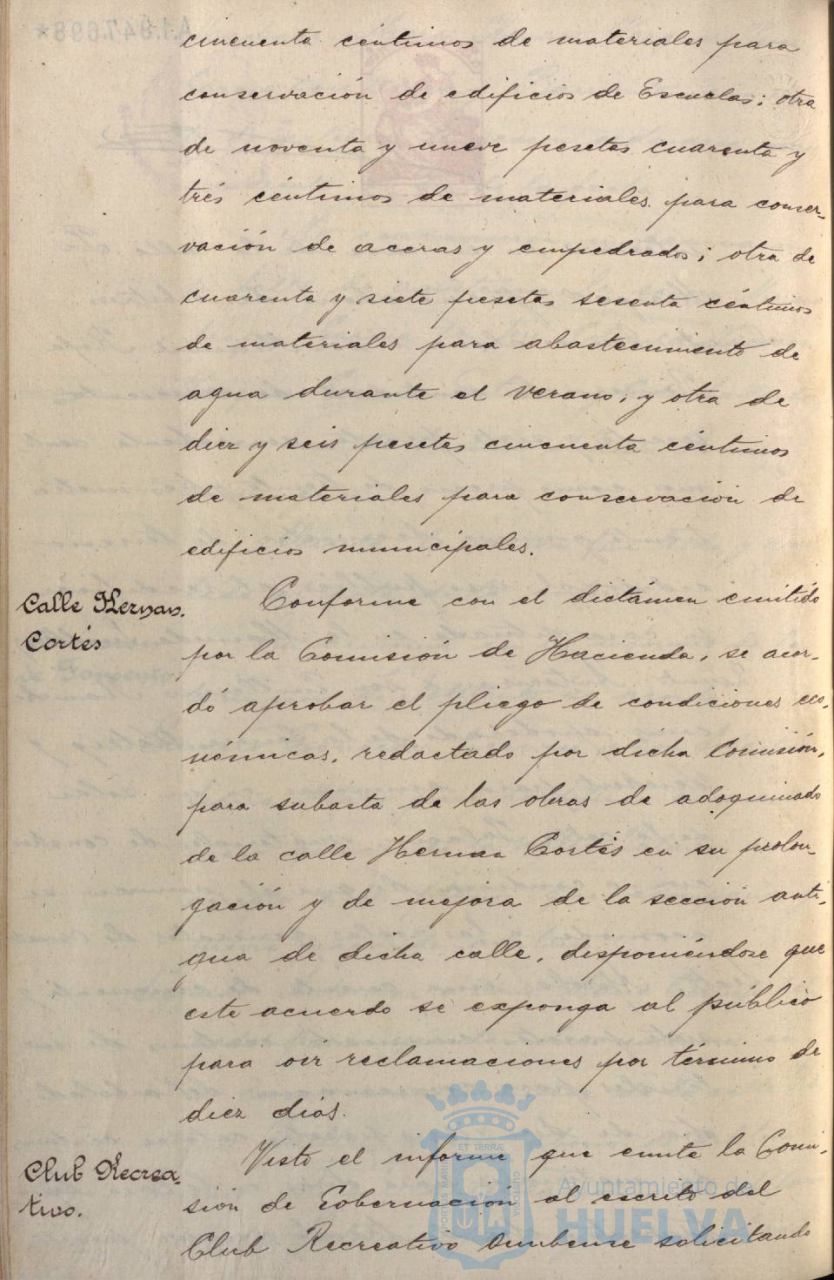 A1.947.698*
cincuenta céntimos de materiales para
conservación de edificios de Escuelas; otra
de noventa y nueve pesetas cuarenta y
trés céntimos de materiales para conser-
vación de aceras y empedrados; otra de
cuarenta y siete pesetas sesenta céntimos
de materiales para abastecimiento de
agua durante el verano; y otra de
diez y seis pesetas cincuenta céntimos
de materiales para conservación de
edificios municipales.
Calle Hernan
Cortés
Conforme con el dictámen emitido
por la Comisión de Hacienda, se acor-
dó aprobar el pliego de condiciones eco-
nómicas, redactado por dicha Comisión,
para subasta de las obras de adoquinado
de la calle Hernan Cortés en su prolon-
gación y de mejora de la sección anti-
gua de dicha calle, disponiéndose que
este acuerdo se exponga al público
para oir reclamaciones por término de
diez dias.
Club Recrea-
tivo.
Visto el informe que emite la Comi-
sión de Gobernación al escrito del
Club Recreativo Onubense solicitando
Ayuntamiento de
HUELVA